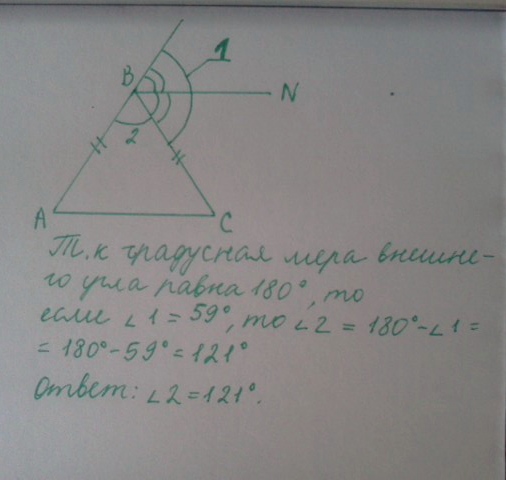 1
B
N
2
A
C
Т.к градусная мера внешне-
го угла равна 180°, то
если ∠1 = 59°, то ∠2 = 180°-∠1 =
= 180°-59°=121°
Ответ: ∠2=121°.